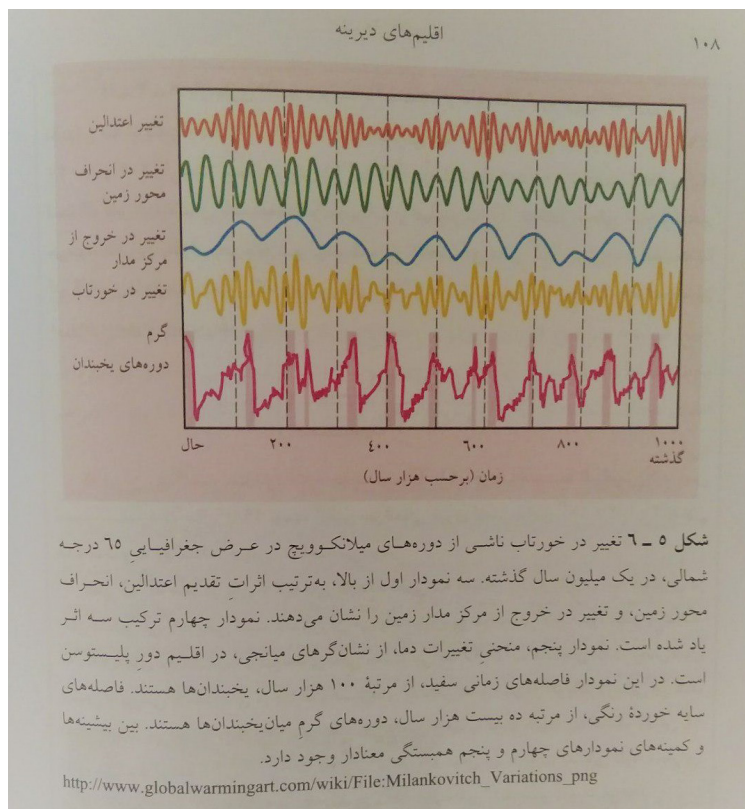 ۱۰۸
اقلیم‌های دیرینه
تغییر اعتدالین
تغییر در انحراف
محور زمین
تغییر در خروج از
مرکز مدار
تغییر در خورتاب
گرم
دوره‌های یخبندان
حال ۲۰۰ ٤۰۰ ٦۰۰ ۸۰۰ ۱۰۰۰
گذشته
زمان (برحسب هزار سال)
شکل ٥ – ٦ تغییر در خورتاب ناشی از دوره‌های میلانکوویچ در عرض جغرافیاییِ ٦٥ درجه
شمالی، در یک میلیون سال گذشته. سه نمودار اول از بالا، به‌ترتیب اثراتِ تقدیم اعتدالین، انحراف
محور زمین، و تغییر در خروج از مرکز مدار زمین را نشان می‌دهند. نمودار چهارم ترکیب سه اثر
یاد شده است. نمودار پنجم، منحنیِ تغییرات دما، از نشان‌گرهای میانجی، در اقلیم دورِ پلیستوسن
است. در این نمودار فاصله‌های زمانی سفید، از مرتبهٔ ۱۰۰ هزار سال، یخبندان‌ها هستند. فاصله‌های
سایه خوردهٔ رنگی، از مرتبه ده بیست هزار سال، دوره‌های گرمِ میان‌یخبندان‌ها هستند. بین بیشینه‌ها
و کمینه‌های نمودارهای چهارم و پنجم همبستگی معنادار وجود دارد.
http://www.globalwarmingart.com/wiki/File:Milankovitch_Variations_png